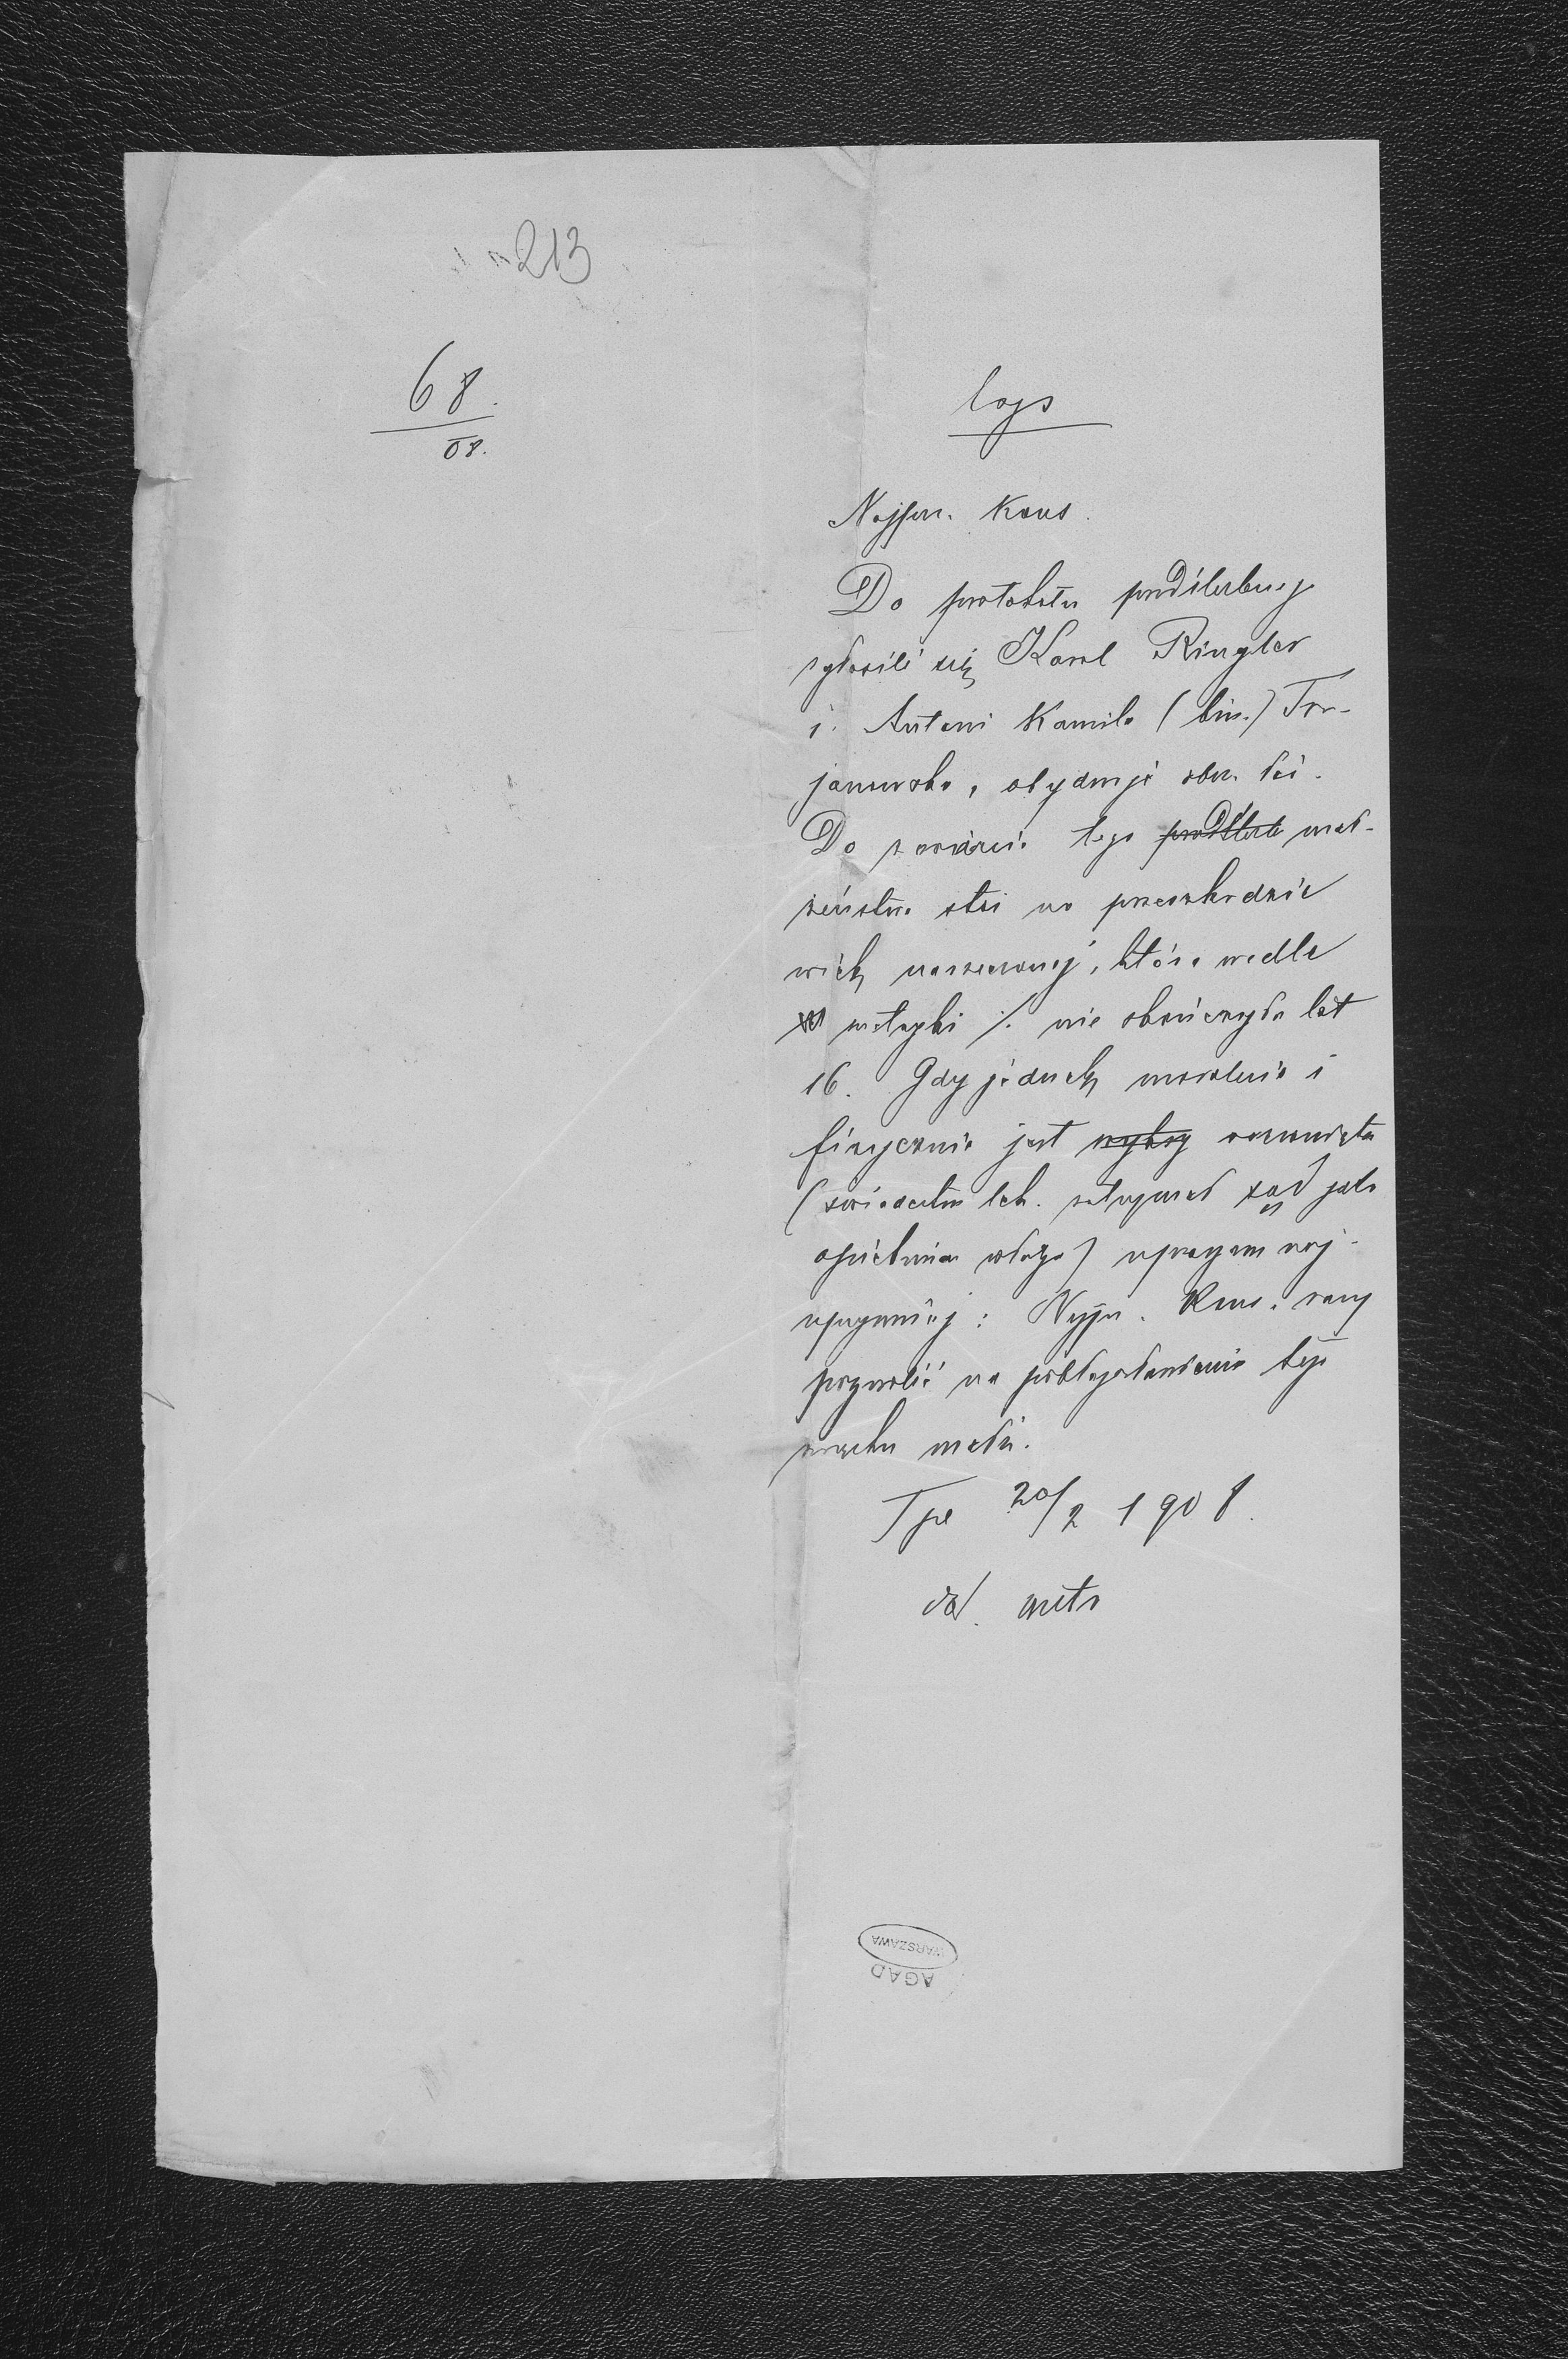 213
68.
08.
Najprz. Kons.
Do protokołu przedślubnego
zgłosili się Karol Ringler
i Antoni Kamila (bin.) Tar-
janowska, obydwoje obrz. łać.
Do zawarcia tego przedślub mał-
żeństwa stoi na przeszkodzie
wiek narzeczonej, która wedle
metryki /. nie skończyła lat
16. Gdy jednak moralnie i
fizycznie jest rozwinięta
(świadectwo lek. zatrzymał sąd jako
opiekuńcza władza) upraszam naj-
uprzejmiej: Najprz. Kons. raczy
pozwolić na pobłogosławienie tego
związku małż.
Tpl 20/2 1908.
AGAD
WARSZAWA